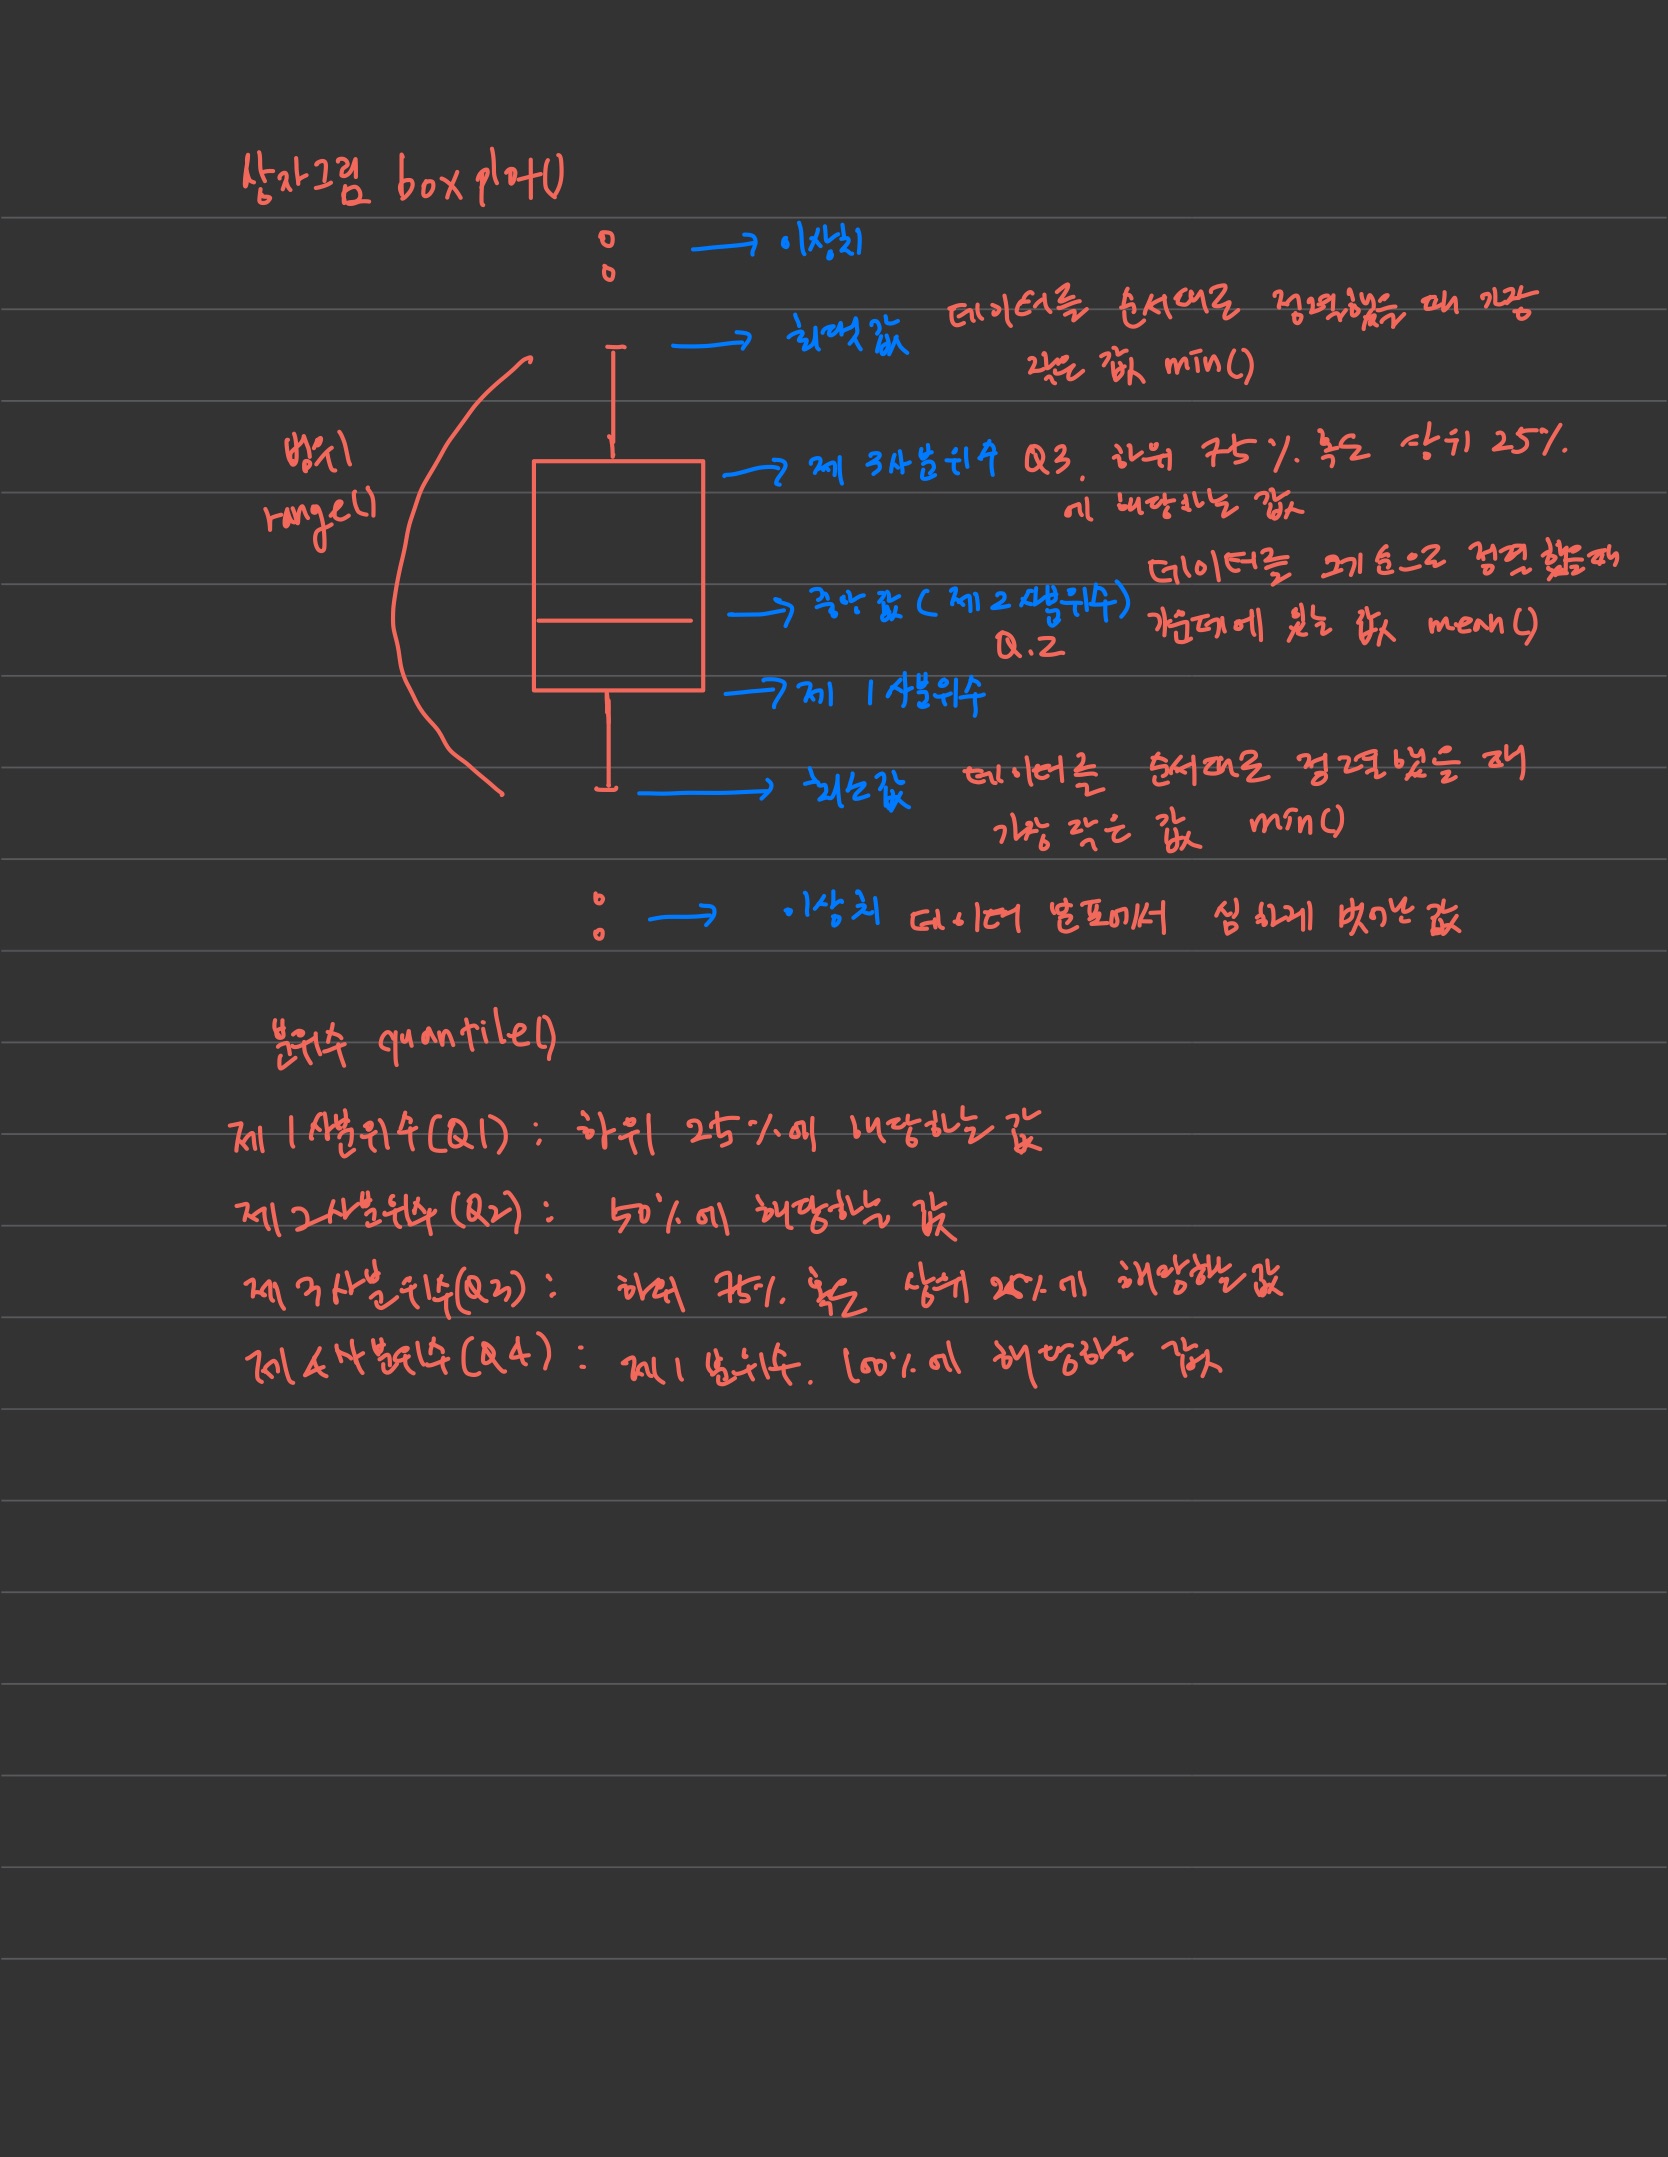 상자그림 boxplot()
이상치
최댓값 데이터를 순서대로 정렬했을 때 가장
작은 값 min()
범위
range()
제 3사분위수 Q3. 하위 75%. 혹은 상위 25%.
에 해당하는 값
데이터를 크기순으로 정렬했을때
중앙값 (제2사분위수) 가운데에 있는 값 mean()
Q.2
제 1사분위수
최소값 데이터를 순서대로 정렬했을 때
가장 작은 값 min()
이상치 데이터 분포에서 심하게 벗어난 값
분위수 quantile()
제1사분위수(Q1) : 하위 25%에 해당하는 값
제2사분위수(Q2) : 50%에 해당하는 값
제3사분위수(Q3) : 하위 75%. 혹은 상위 25%에 해당하는 값
제4사분위수(Q4) : 제1분위수. 100%에 해당하는 값